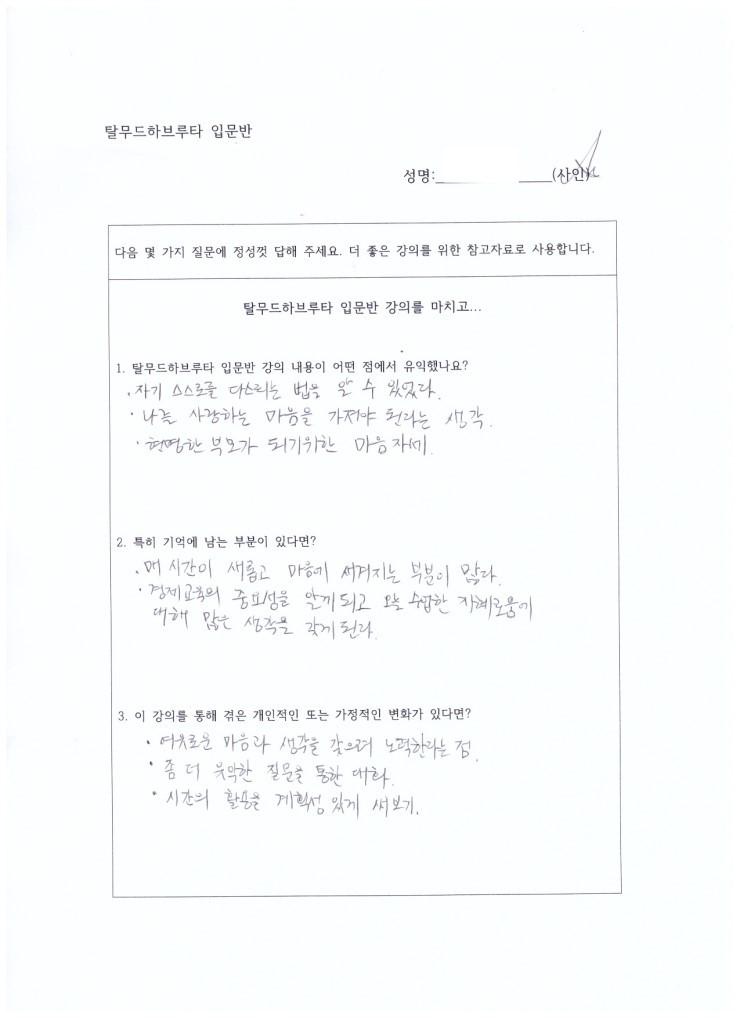 탈무드하브루타 입문반
성명: (사인)
다음 몇 가지 질문에 정성껏 답해 주세요. 더 좋은 강의를 위한 참고자료로 사용합니다.
탈무드하브루타 입문반 강의를 마치고...
1. 탈무드하브루타 입문반 강의 내용이 어떤 점에서 유익했나요?
· 자기 스스로를 다스리는 법을 알 수 있었다.
· 나를 사랑하는 마음을 가져야 된다는 생각.
· 현명한 부모가 되기위한 마음자세.
2. 특히 기억에 남는 부분이 있다면?
· 매 시간이 새롭고 마음에 새겨지는 부분이 많다.
· 경제교육의 중요성을 알게되고 오늘 수업한 지혜로움에
대해 많은 생각을 갖게된다.
3. 이 강의를 통해 겪은 개인적인 또는 가정적인 변화가 있다면?
· 여유로운 마음과 생각을 갖으려 노력한다는 점.
· 좀 더 한 질문을 통한 대화.
· 시간의 활용을 계획성 있게 써보기.